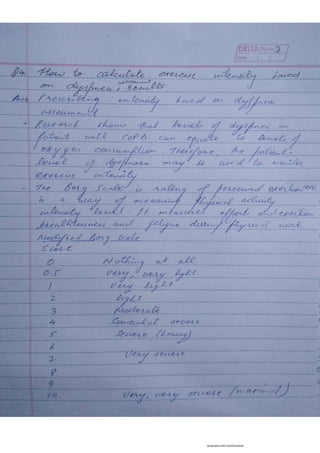 DELTA Pg No. 2
Date / /
Q4. How to calculate exercise intensity based
on dyspnea assessment results
Ans Prescribing intensity based on dyspnea
assessment
- Research shows that levels of dyspnea in
patient with COPD can equate to levels of
oxygen consumption. Therefore, the patient
level of dyspnoea may be used to monitor
exercise intensity
- The Borg Scale is rating of perceived exertion
is a way of measuring physical activity
intensity level. It measures efforts and exertion
breathlessness and fatigue during physical work
Modified Borg Scale
Score
0 Nothing at all
0.5 very, very light
1 very light
2 light
3 Moderate
4 Somewhat severe
5 Severe (heavy)
6
7 Very severe
8
9
10 very, very severe (maximal)
Scanned with CamScanner